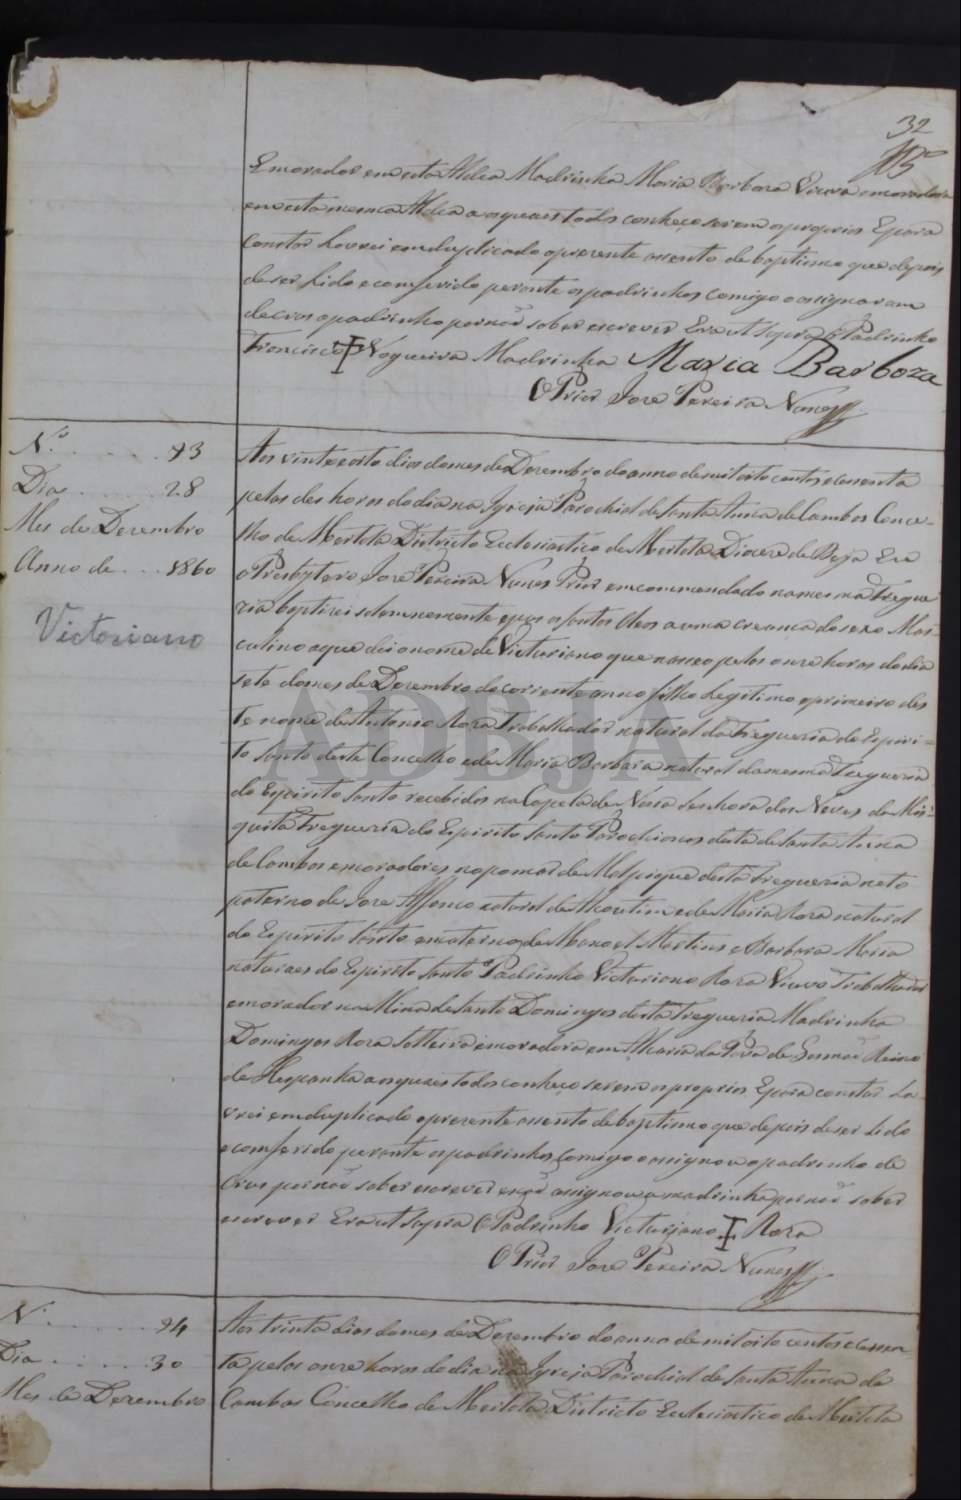 32
E morador em esta Aldea Madrinha Maria Barbara Viuva e moradora
em esta mesma Aldea aos quaes todos conheço serem os proprios E para
constar Lavrei em duplicado o prezente assento de baptismo que depois
de ser Lido e comferido perante os padrinhos comigo o asignaram
de cros o padrinho por não saber escrever Era ut Supra O Padrinho
Francisco Nogueira Madrinha Maria Barboza
O Prior Joze Pereira Nunes
N.º 93
Dia 28
Mes de Dezembro
Anno de 1860
Victoriano
Aos vinte e oito dias do mes de Dezembro do anno de mil oito centos e sesenta
pelas des horas do dia na Igreja Parochial de Santa Anna de Cambas Conce-
lho de Mertola Districto Ecclesiastico de Mertola Diocese de Beja Eu
o Presbytero Joze Pereira Nunes Prior emcommendado na mesma Fregue
zia baptizei solemnemente e pus os Santos Oleos a uma creanca do sexo Mas-
culino a que dei o nome de Victuriano que nasceo pelas onze horas do dia
sete do mes de Dezembro do corrente anno filho Legitimo o primeiro des
te nome de Antonio Roza Trabalhador natural da Freguezia do Espiri-
to Santo deste Concelho e de Maria Barbara natural da mesma Freguezia
do Espirito Santo recebidos na Capela de Nosa Senhora das Neves da Mes-
quita Freguezia do Espirito Santo Parochianos desta de Santa Anna
de Cambas e moradores no pomar de Malpique desta Freguezia neto
paterno de Joze Affonço natural de Alcoutim e de Maria Roza natural
do Espirito Santo e materno de Manoel Martins e Barbara Maria
naturaes do Espirito Santo Padrinho Victuriano Roza Viuvo Trabalhador
e morador na Mina de Santo Domingos desta Freguezia Madrinha
Domingas Roza Solteira e moradora em Reino
de Hespanha aos quaes todos conheço serem os proprios E para constar La
vrei em duplicado o prezente assento de baptismo que depois de ser Lido
e comferido perante os padrinhos comigo o asignou o padrinho de
cros por não saber escrever e não asignou a madrinha por não saber
escrever Era ut Supra O Padrinho Victuriano Roza
O Prior Joze Pereira Nunes
N.º 94
Dia 30
Mes de Dezembro
Aos trinta dias do mes de Dezembro do anno de mil oito centos e sesen
ta pelas onze horas do dia na Igreja Parochial de Santa Anna de
Cambas Concelho de Mertola Districto Ecclesiastico de Mertola
ADBJA